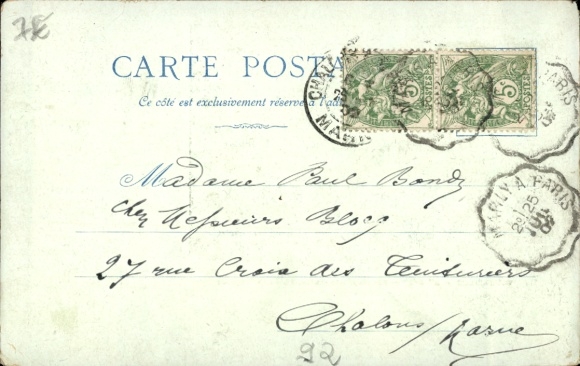 CARTE POSTA
Ce côté est exclusivement réservé à l'ad
5 5
POSTES
MARLY A PARIS
25
PARIS
Madame Paul Bondy
chez Messieurs Blocq
27 rue Croix des Teinturiers
Chalons/Marne
92